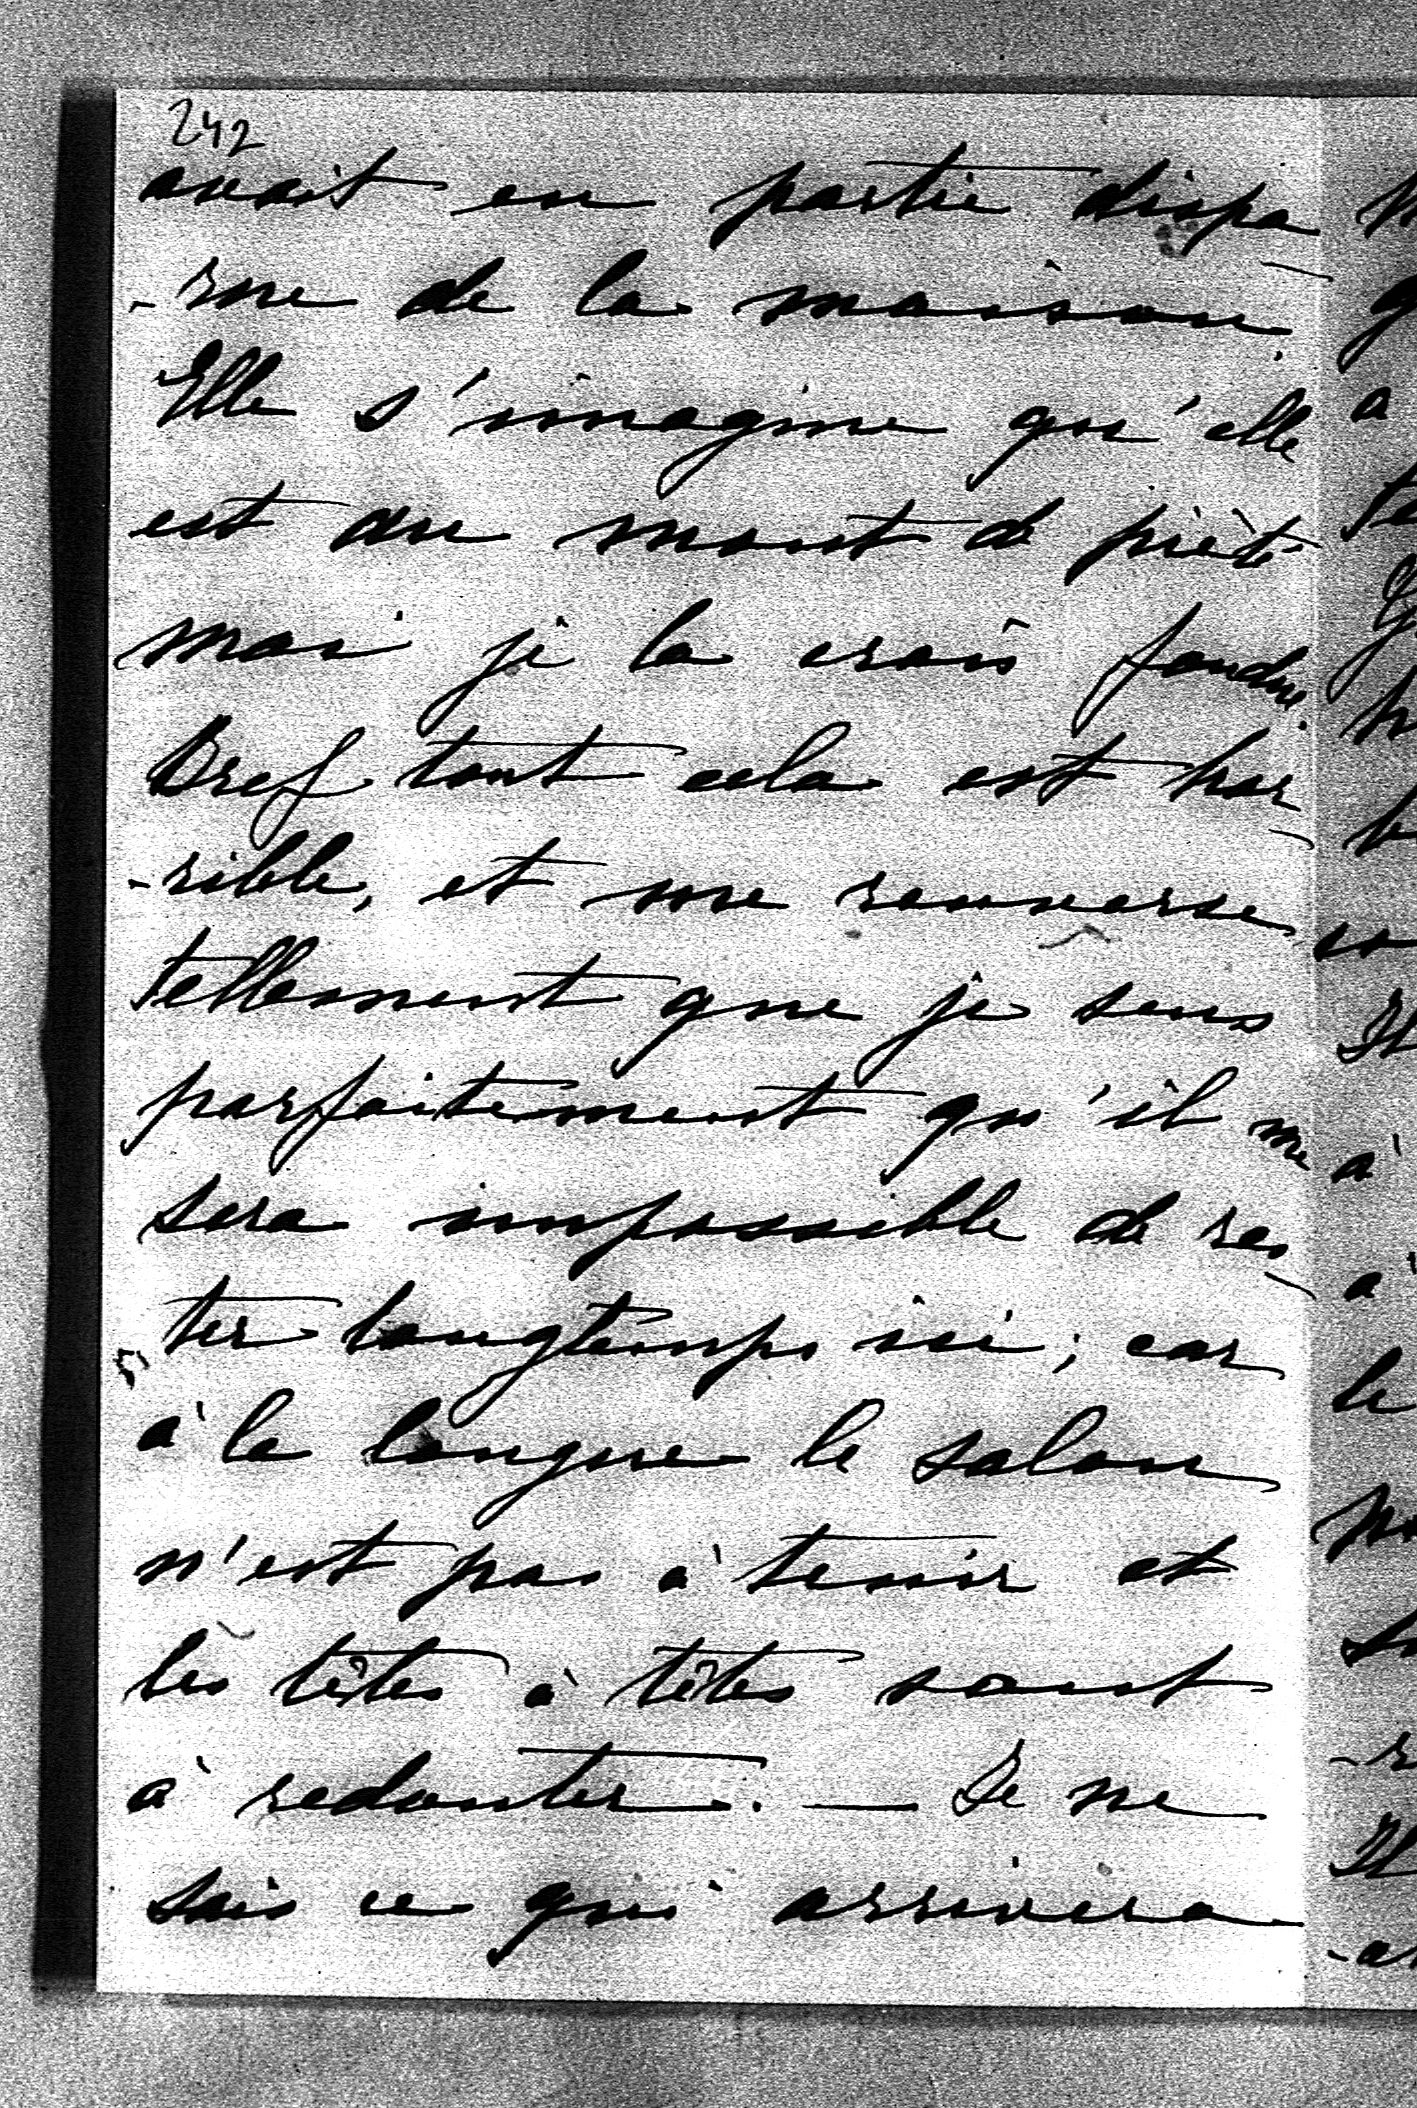 242
avait en partie dispa
-rue de la maison.
Elle s'imagine qu'elle
est au mont de piété
moi je la crois fondue.
Bref tout cela est hor
-rible, et me renverse
tellement que je sens
parfaitement qu'il me
sera impossible de res
ter longtemps ici ; car
à la longue le salon
n'est pas à tenir et
les têtes à têtes sont
à redouter. — Je ne
sais ce qui arrivera